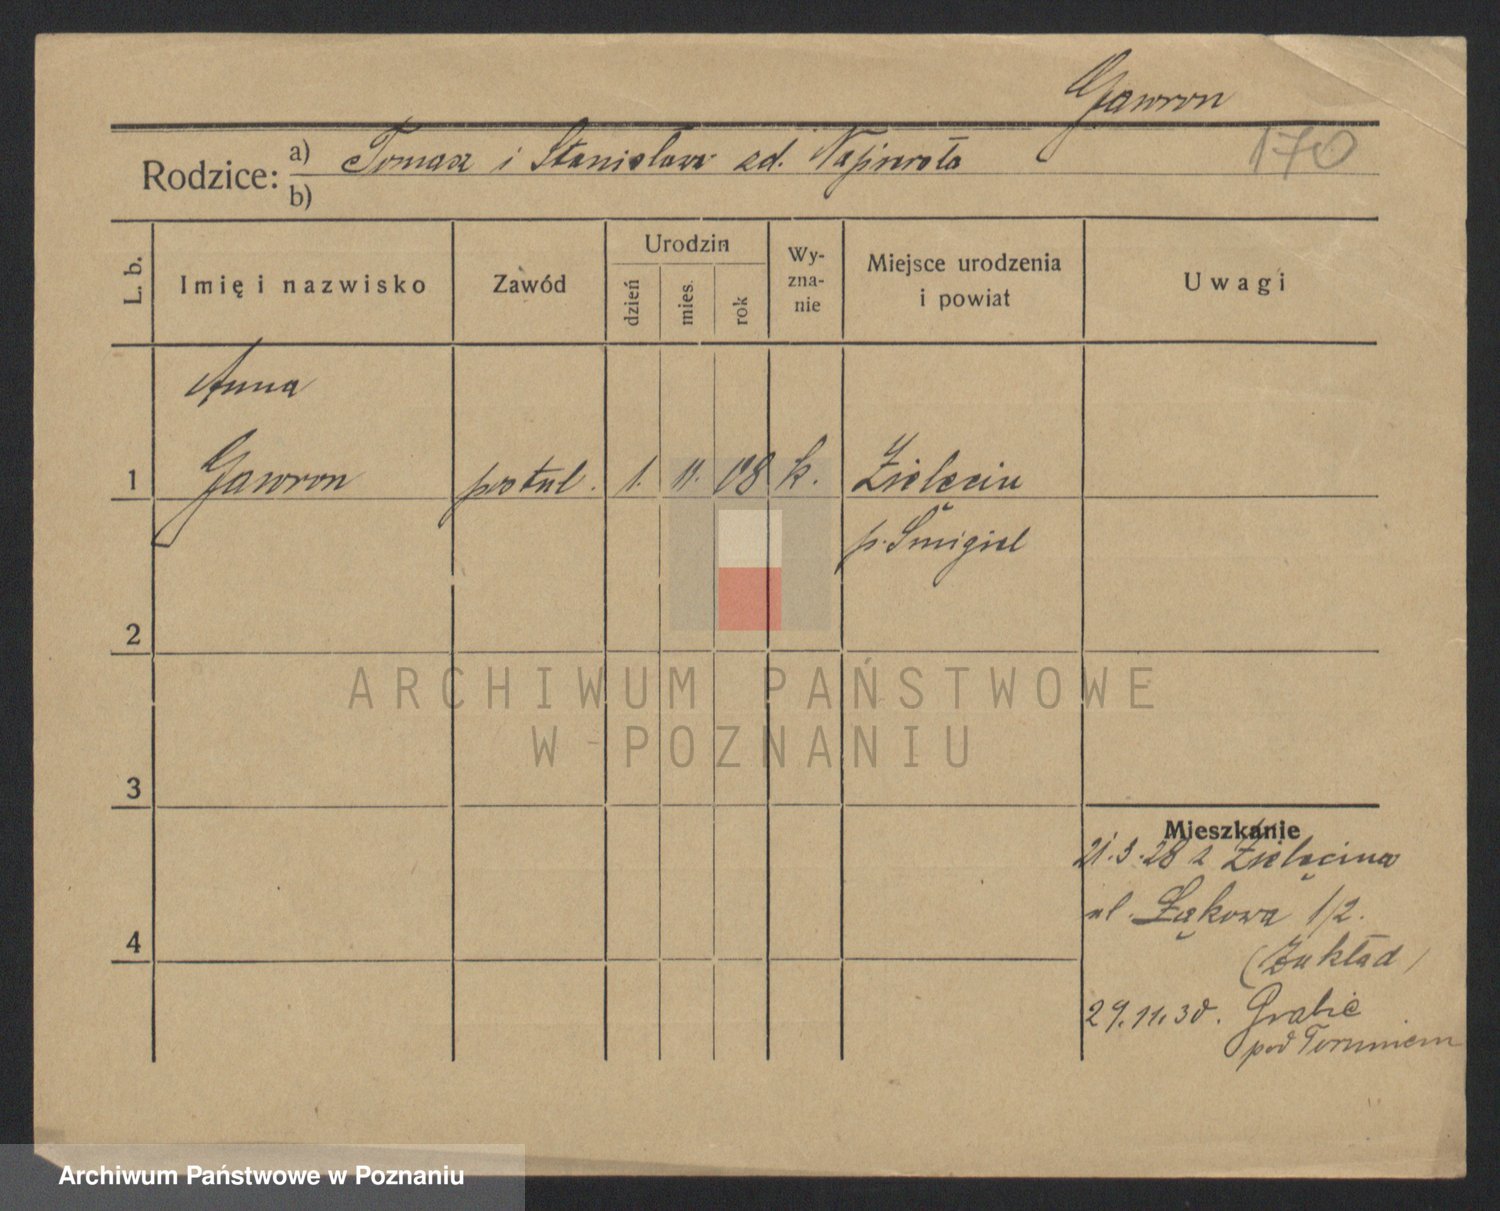 Gawron
170
Rodzice: a) Tomasz i Stanisława zd. Napierała
b)
L. b.
Imię i nazwisko
Zawód
Urodzin
dzień
mies.
rok
Wy-
zna-
nie
Miejsce urodzenia
i powiat
Uwagi
Anna
1 Gawron postul. 1. 11. 08 k. Zielęcin
p. Śmigiel
2
3
4
Mieszkanie
21.3.28 z Zielęcina
ul. Łąkowa 1/2.
(Zakład)
29.11.30. Grabie
pod Toruniem
ARCHIWUM PAŃSTWOWE
W POZNANIU
Archiwum Państwowe w Poznaniu